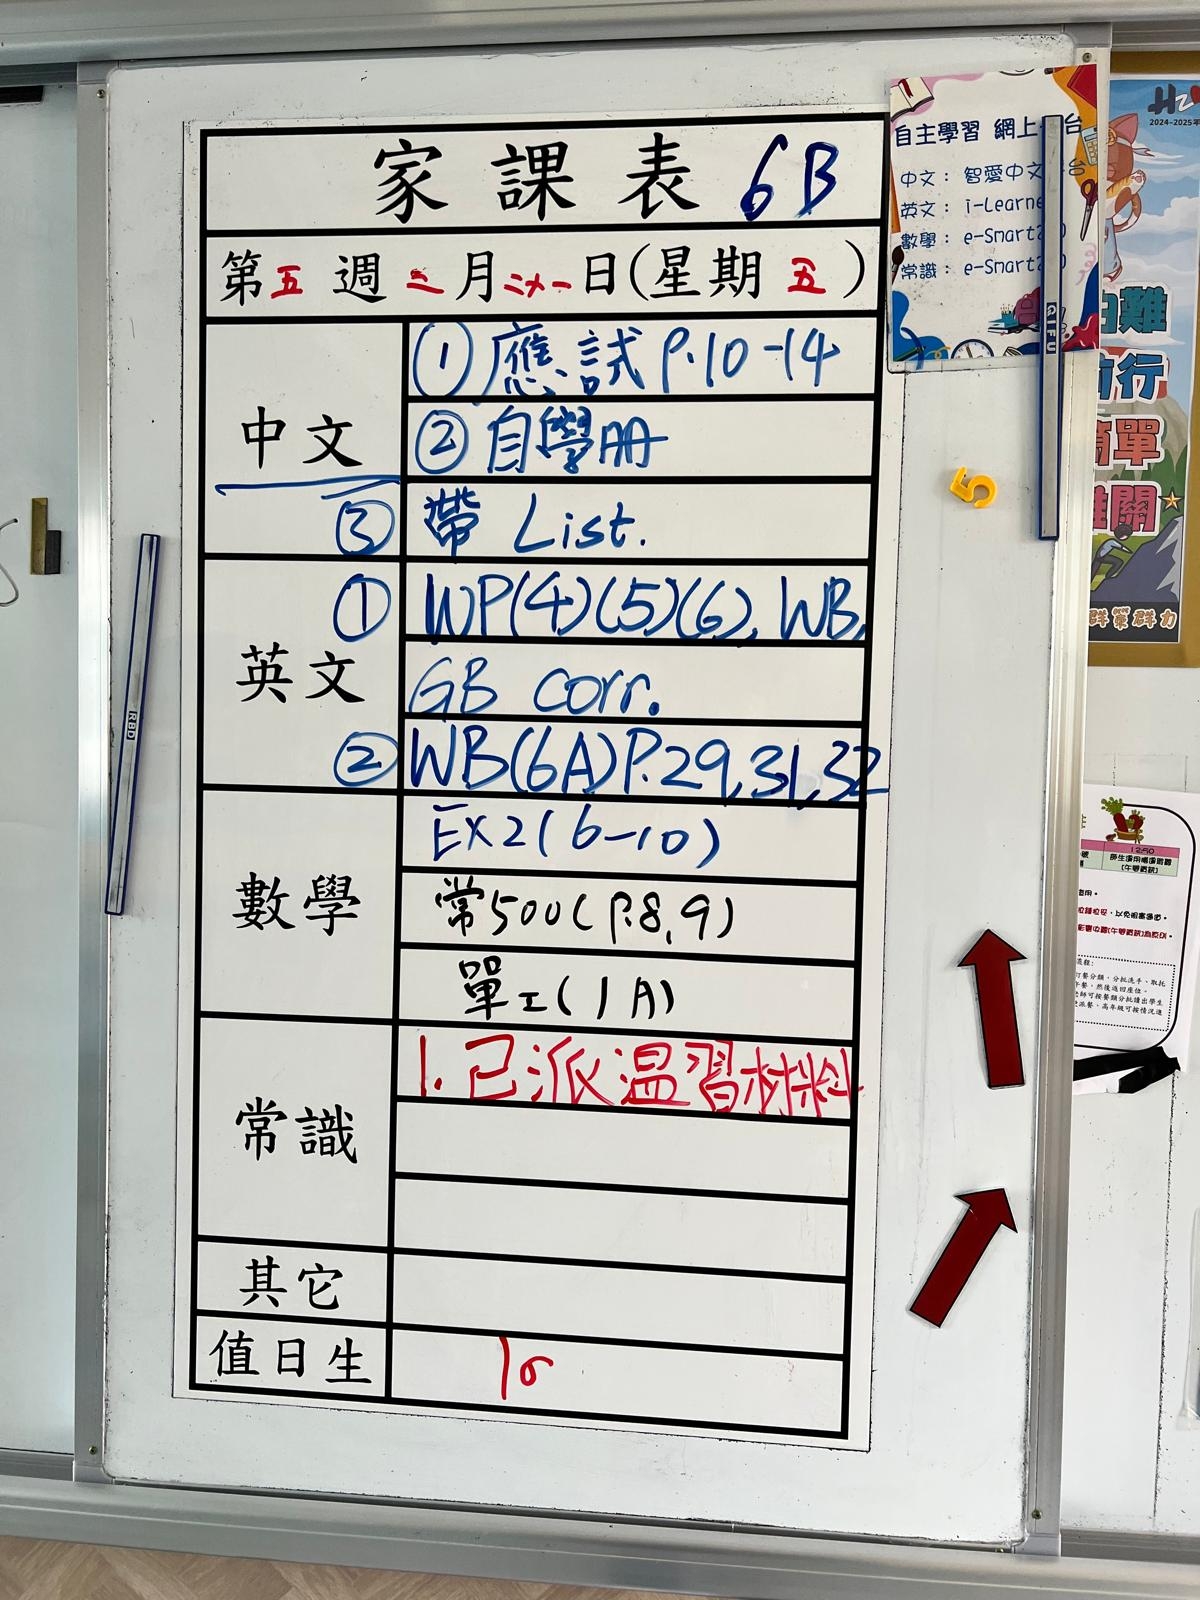 家課表 6B
第五週二月二十一日(星期五)
中文
① 應試 P.10-14
② 自學冊
③ 帶 List.
英文
① WP(4)(5)(6), WB,
GB corr.
② WB(6A)P.29,31,32
數學
Ex2(6-10)
常500(P.8,9)
單工(1A)
常識
1. 已派温習材料
其它
值日生
自主學習 網上
中文: 智愛中文
英文: i-Learne
數學: e-Smart
常識: e-Smart
GIFU
RBD
5
2024-2025年
難
行
單
關
群策群力
12:50